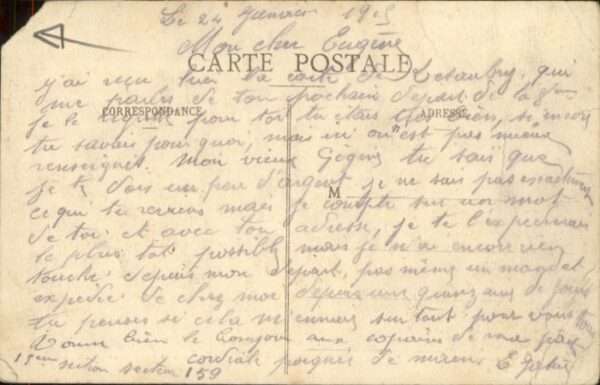 Le 24 Janvier 1915
Mon cher Eugène
CARTE POSTALE
j'ai reçu hier ta carte de qui
me parles de ton prochain départ de
CORRESPONDANCE
ADRESSE
je le regrette pour toi tu étais bien, si encore
tu savais pourquoi, mais on n'est pas mieux
renseigner. Mon vieux Gégène tu sais que
je te dois un peu d'argent je ne sais pas exactement
M
ce qui te reviens mais je compte sur un mot
de toi et avec ton adresse, je te l'expédierais
le plus tôt possible, mais je n'ai encore rien
touché depuis mon départ, pas même un mandat
expédié de chez moi depuis une quinzaine de jours
tu penses si cela m'ennuie surtout pour vous
Donne bien le bonjour aux copains de ma part
cordiale poignée de mains. E
15eme section 159